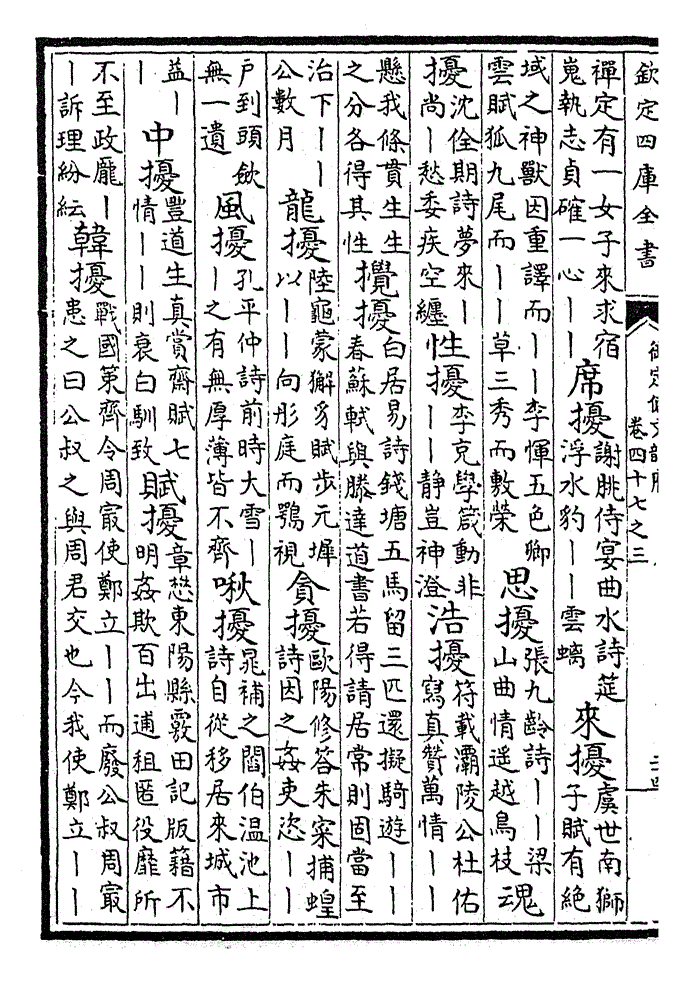 欽定四庫全書
卷四十七之三
禪定有一女子來求宿嵬執志貞確一心〡〡席擾謝朓侍宴曲水詩筵浮水豹〡〡雲螭來擾虞世南獅子賦有絶
域之神獸因重譯而〡〡李惲五色卿雲賦狐九尾而〡〡草三秀而敷榮思擾張九齡詩〡〡梁山曲情遥越鳥枝魂
擾沈佺期詩夢來〡尚〡愁委疾空纏性擾李克學箴動非〡〡静豈神澄浩擾符載灞陵公杜佑寫真贊萬情〡〡
懸我條貫生生之分各得其性攪擾白居易詩錢塘五馬留三匹還擬騎遊〡〡春蘇軾與滕達道書若得請居常則固當至
治下〡〡公數月龍擾陸龜蒙獬豸賦步元墀以〡〡向彤庭而鶚視貪擾歐陽修答朱寀捕蝗詩因之姦吏恣〡〡
戶到頭斂無一遺風擾孔平仲詩前時大雪〡〡之有無厚薄皆不齊啾擾晁補之閻伯温池上詩自從移居來城市
益〡〡中擾豐道生真賞齋賦七情〡〡則衰白馴致賦擾章懋東陽縣覈田記版籍不明姦欺百出逋租匿役靡所
不至政龐〡〡訴理紛紜韓擾戰國策齊令周㝡使鄭立〡〡而廢公叔周㝡患之曰公叔之與周君交也今我使鄭立〡〡